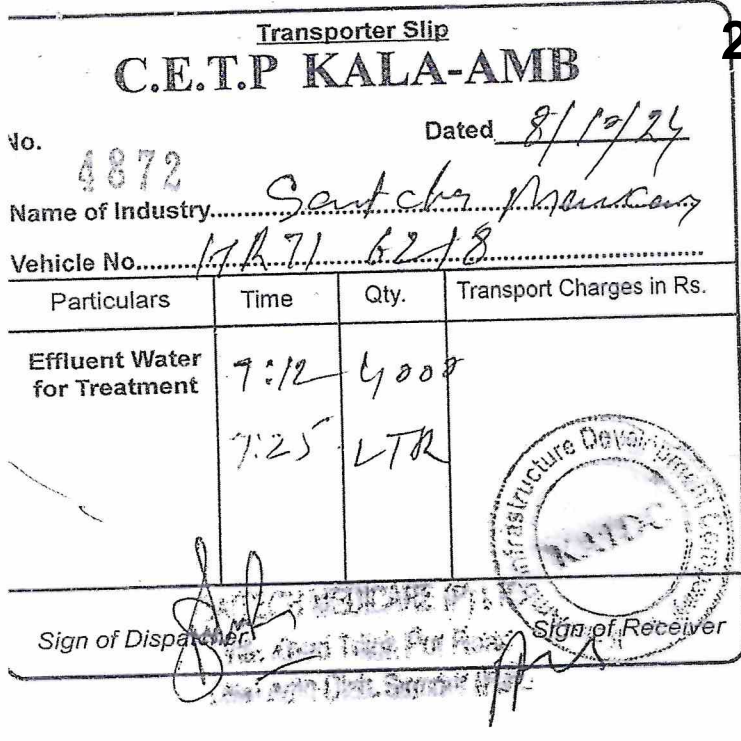 Transporter Slip
2
C.E.T.P KALA-AMB
No. 4872
Dated 8/12/24
Name of Industry
Vehicle No. HR71 6218
Particulars Time Qty. Transport Charges in Rs.
Effluent Water for Treatment 7:12 4000
7:25 LTR
Infrastructure Development Company
KAIDC
MEDICARE (P)
Sign of Dispatcher
Sign of Receiver